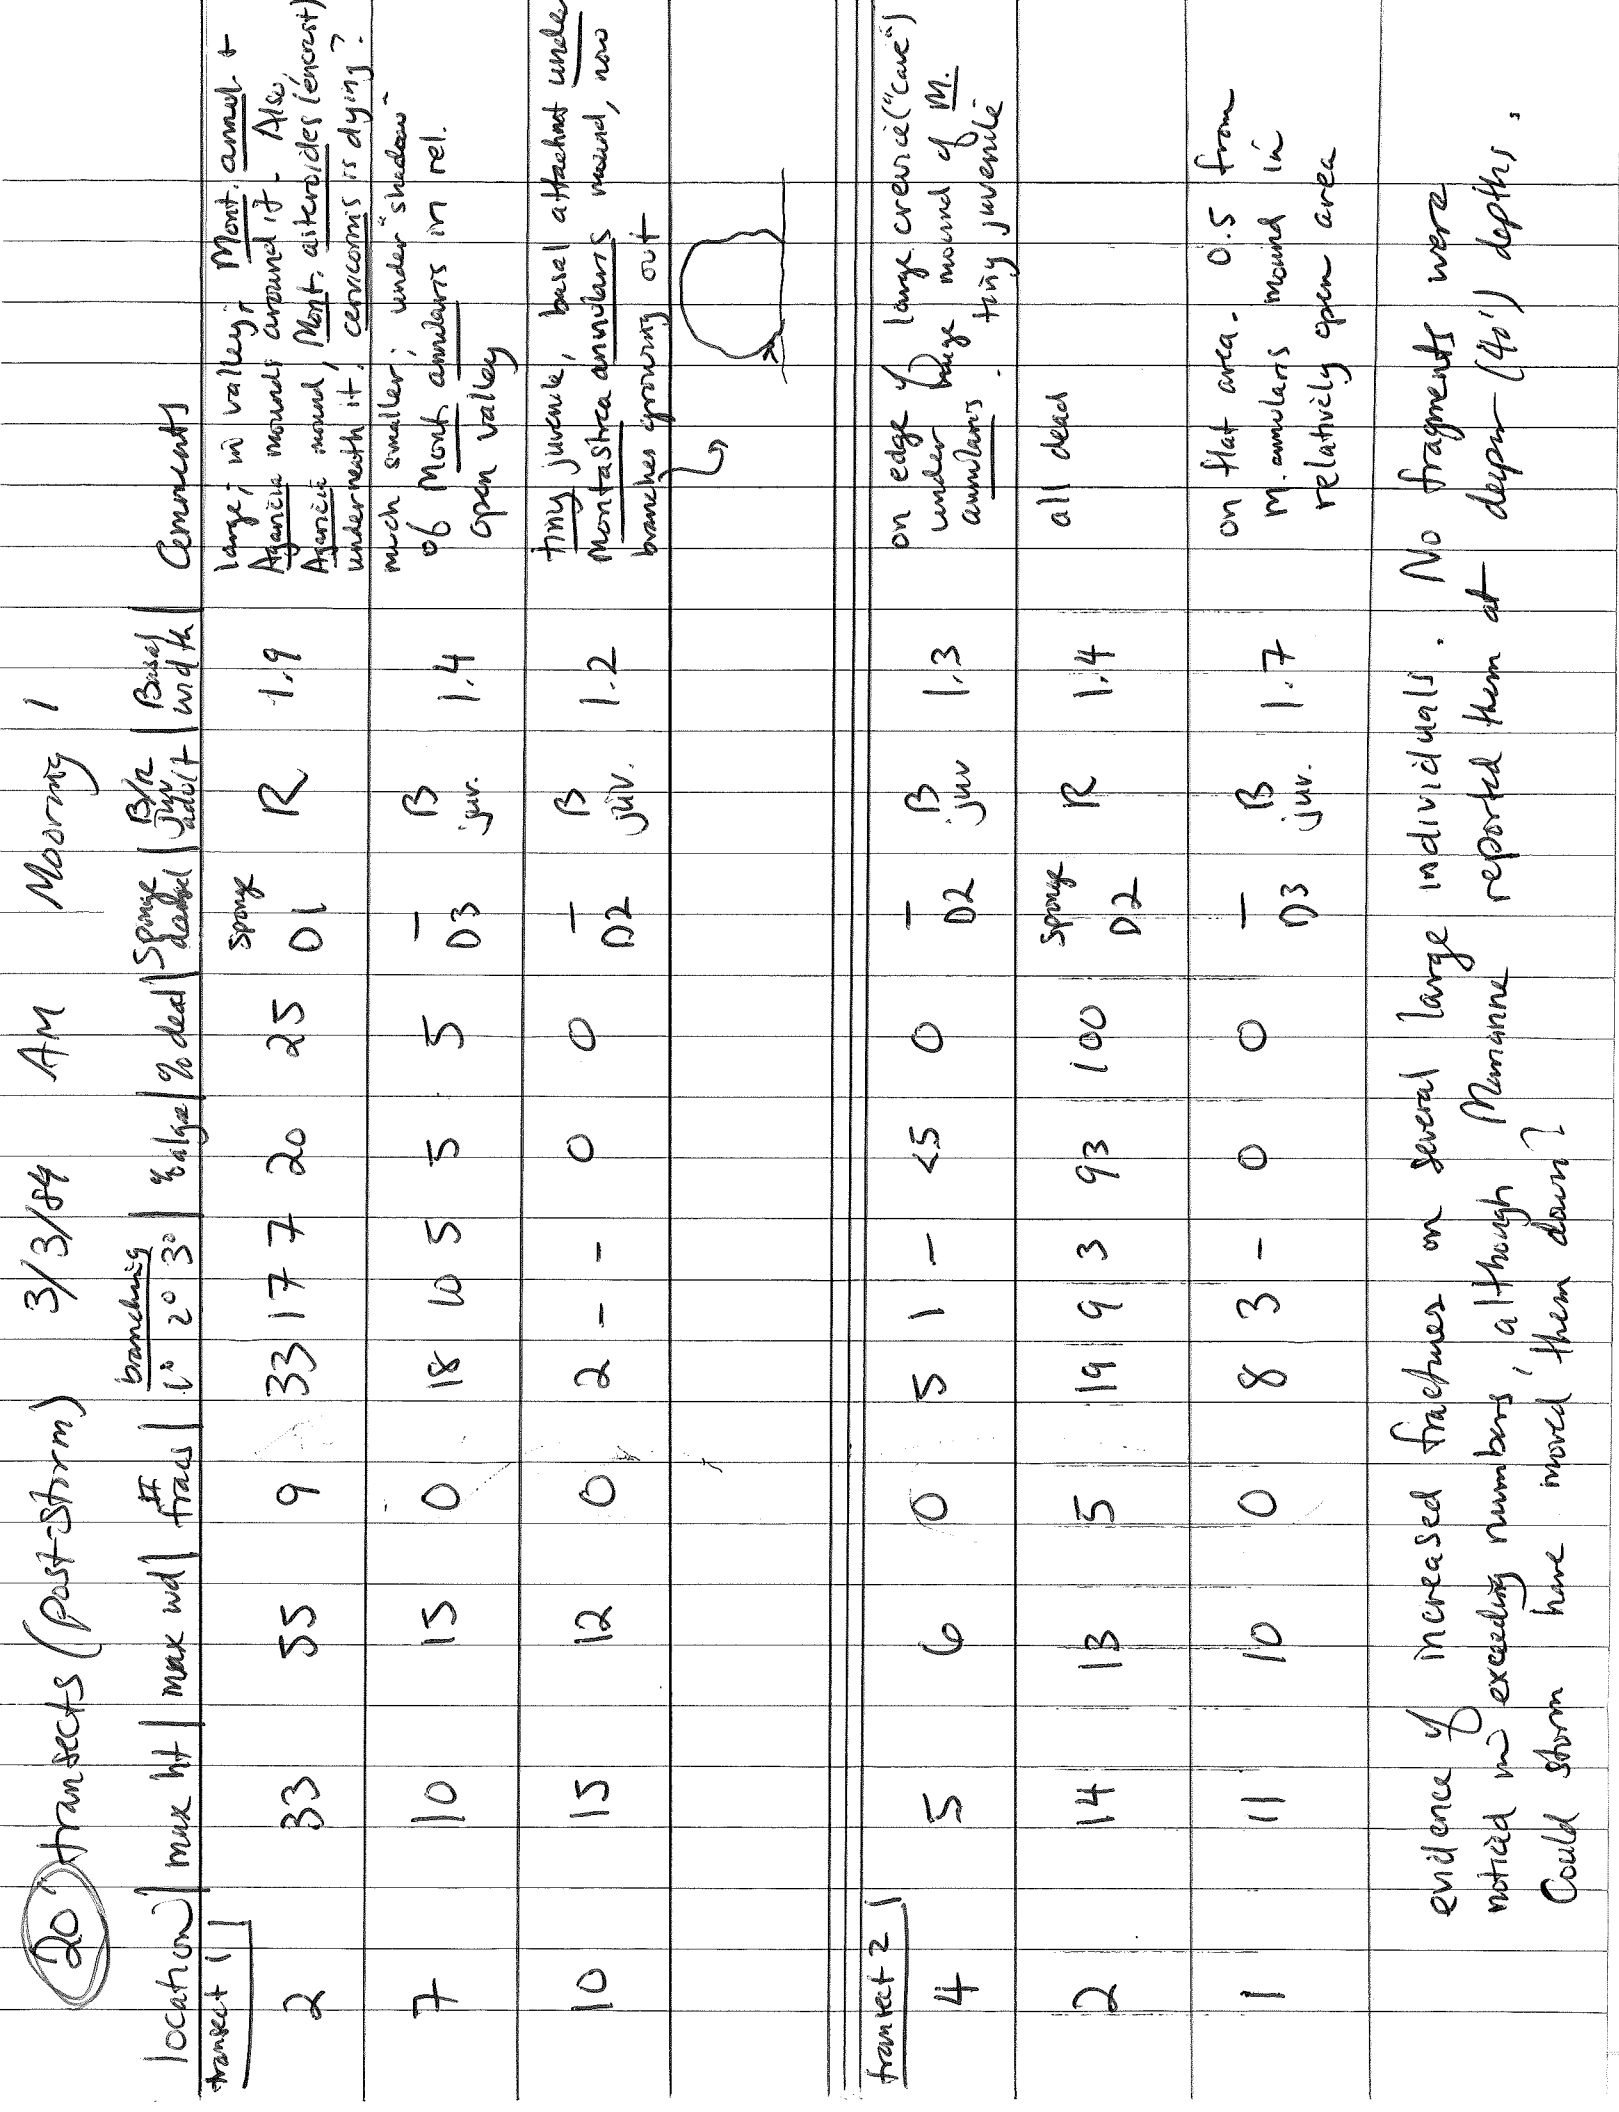 20' transects (post-storm) 3/3/84 AM Mooring 1
location | max ht | max wd | # fracs | branching 1° 2° 3° | % algae | % dead | Sponge dens | B/R juv adult | Basal width | Comments
transect 1
2 33 55 9 33 17 7 20 25 sponge D1 R 1.9 large; in valley; Mont. annul. +
Agaricia mounds around it. Also
Agaricia mound, Mont. asteroides (encrust)
underneath it. cervicornis is dying?
7 10 15 0 18 10 5 5 5 – D3 B juv. 1.4 much smaller; under "shadow"
of Mont. annularis in rel.
open valley
10 15 12 0 2 – – 0 0 – D2 B juv. 1.2 tiny juvenile, basal attachmt unde
Montastrea annularis mound, now
branches growing out
transect 2
4 5 6 0 5 1 – <5 0 – D2 B juv 1.3 on edge of large crevice ("cave")
under huge mound of M.
annularis. tiny juvenile
2 14 13 5 19 9 3 93 100 sponge D2 R 1.4 all dead
1 11 10 0 8 3 – 0 0 – D3 B juv. 1.7 on flat area. 0.5 from
M. annularis mound in
relatively open area
evidence of increased fractures on several large individuals. No fragments were
noticed in exceeding numbers, although Marianne reported them at deeper (40') depths.
Could storm have moved them down?